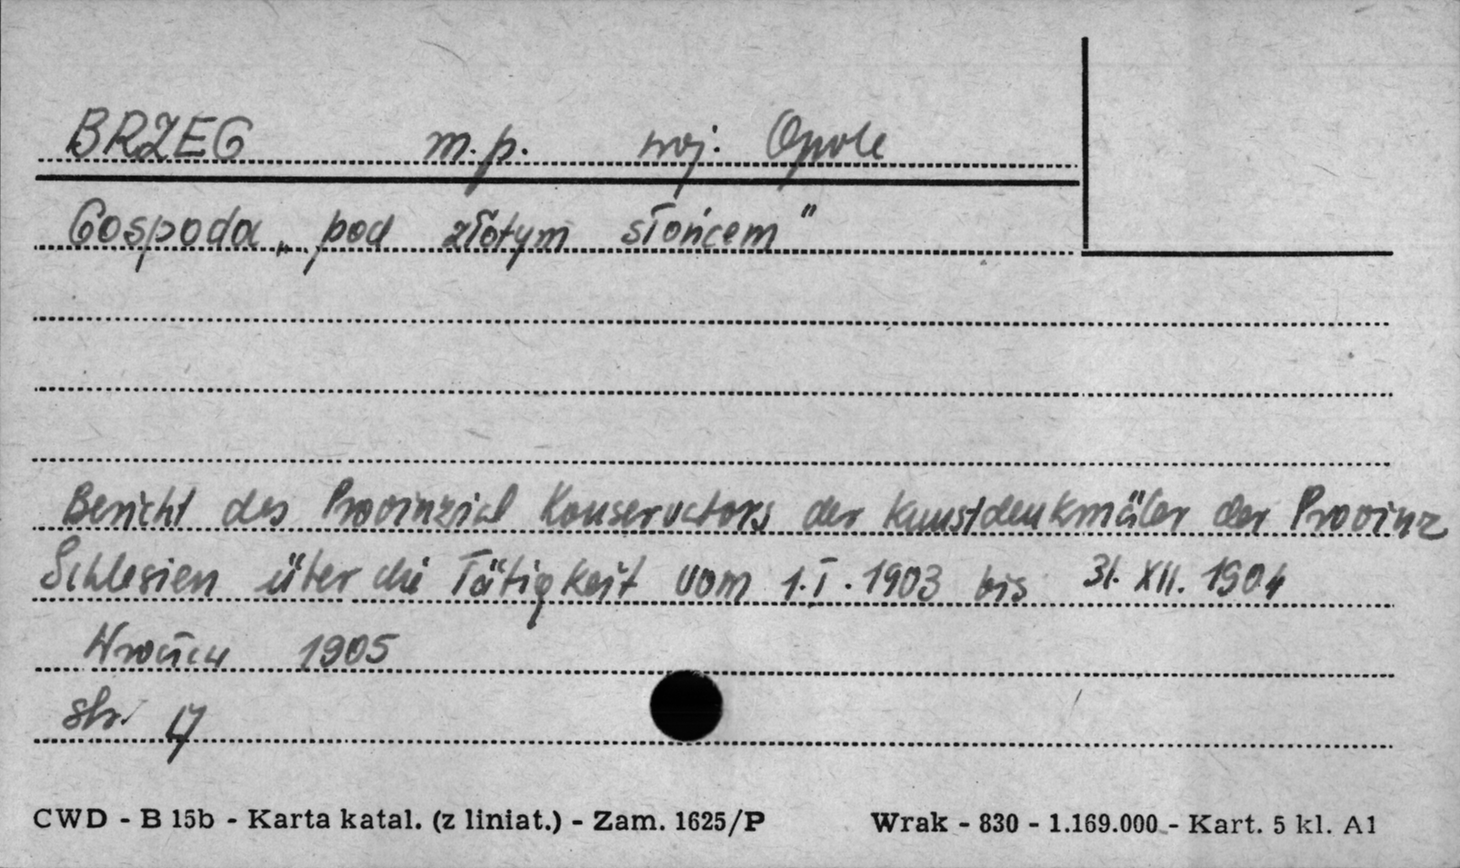 BRZEG m.p. woj. Opole
Gospoda „pod złotym słońcem”
Bericht des Provinzial Konservators der Kunstdenkmäler der Provinz
Schlesien über die Tätigkeit vom 1.I.1903 bis 31.XII.1904
Wrocław 1905
str. 17
CWD - B 15b - Karta katal. (z liniat.) - Zam. 1625/P Wrak - 830 - 1.169.000 - Kart. 5 kl. A1